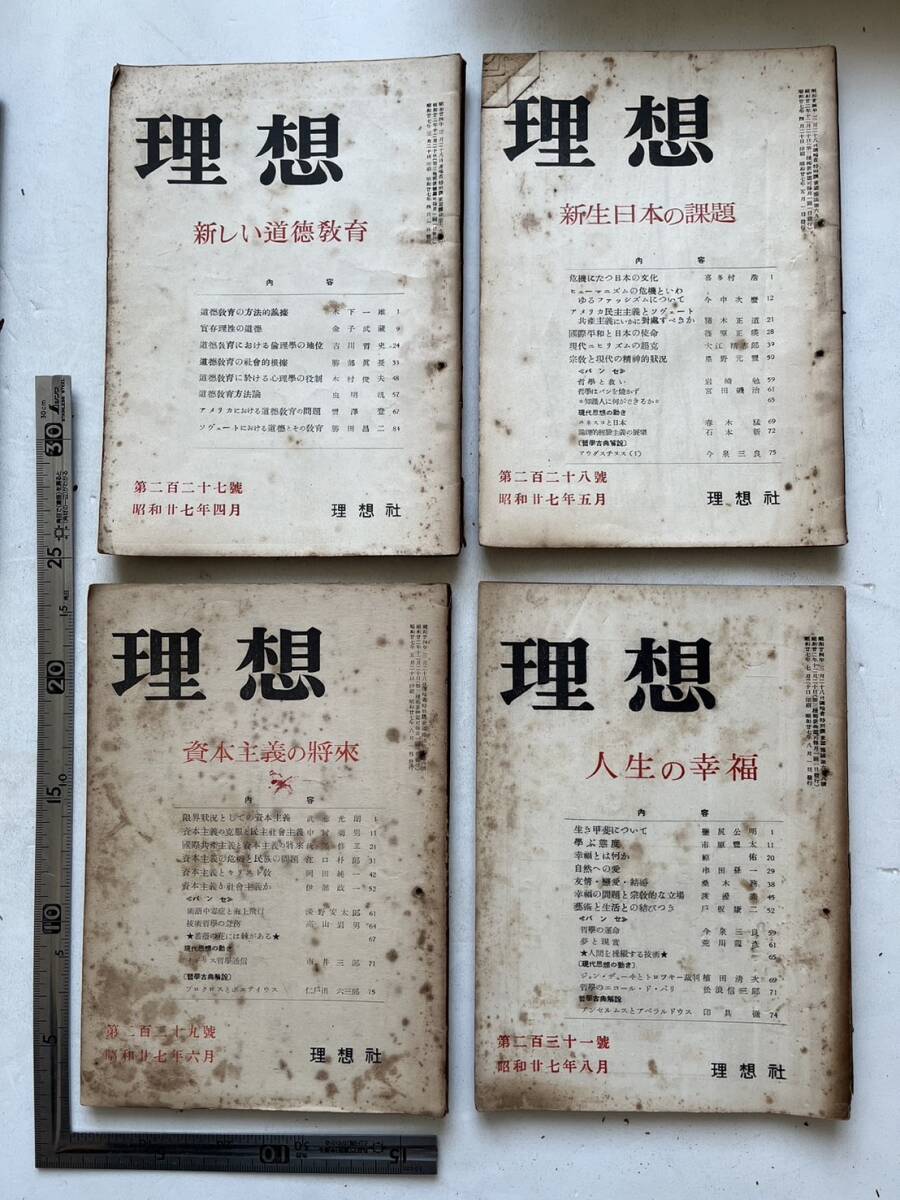 理想
新しい道德敎育
內容
道德敎育の方法的基據 木下一雄 1
實存理性の道德 金子武藏 9
道德敎育における倫理學の地位 古川哲史 24
道德敎育の社會的根據 勝部眞長 33
道德敎育に於ける心理學の役割 木村俊夫 48
道德敎育方法論
アメリカにおける道德敎育の問題 67
ソヴェートにおける道德とその敎育 勝田昌二 84
第二百二十七號
昭和廿七年四月
理想社
理想
新生日本の課題
內容
危機にたつ日本の文化 喜多村浩 1
ヒューマニズムの危機といわ
ゆるファッシズムについて 今中次麿 12
アメリカ民主主義とソヴェート
共產主義にいかに對處すべきか 猪木正道 21
國際平和と日本の使命 篠原正瑛 28
現代ニヒリズムの超克 大江精志郎 39
宗敎と現代の精神的狀況 星野元豐 50
≪パンセ≫
哲學と救い 岩崎勉 59
哲學はパンを燒かず 宮田磯治 61
¤知識人に何ができるか¤ 65
現代思想の動き
ユネスコと日本 春木猛 69
論理的經驗主義の展望 石本新 72
〔哲學古典解說〕
アウグスチヌス(1) 今泉三良 75
第二百二十八號
昭和廿七年五月
理想社
理想
資本主義の將來
內容
限界狀況としての資本主義 武市光朗 1
資本主義の克服と民主社會主義 中村菊男 11
國際共產主義と資本主義の將來 21
資本主義の危機と民族の問題 江口朴郎 31
資本主義とキリスト敎 岡田純一 42
資本主義か社會主義か 伊部政一 52
≪パンセ≫
術語中毒症と海上飛行 淡野安太郎 61
技術哲學の急務 高山岩男 64
★薔薇の花には棘がある★ 67
現代思想の動き
イギリス哲學通信 市井三郎 71
〔哲學古典解說〕
プロクロスとボエティウス 仁戶田六三郎 75
第二百二十九號
昭和廿七年六月
理想社
理想
人生の幸福
內容
生き甲斐について 樫尾公明 1
學ぶ態度 市原豐太 11
幸福とは何か 20
自然への愛 串田孫一 29
友情・戀愛・結婚 桑木務 38
幸福の問題と宗敎的な立場 45
藝術と生活との結びつき 戶板康二 52
≪パンセ≫
哲學の運命 今泉三良 59
夢と現實 荒川龍彥 61
★人間を操縱する技術★ 65
〔現代思想の動き〕
ジョン・デューヰとトロツキー裁判 植田清次 69
哲學のエコール・ド・パリ 松浪信三郎 71
哲學古典解說
アンセルムスとアベラルドウス 印具徹 74
第二百三十一號
昭和廿七年八月
理想社